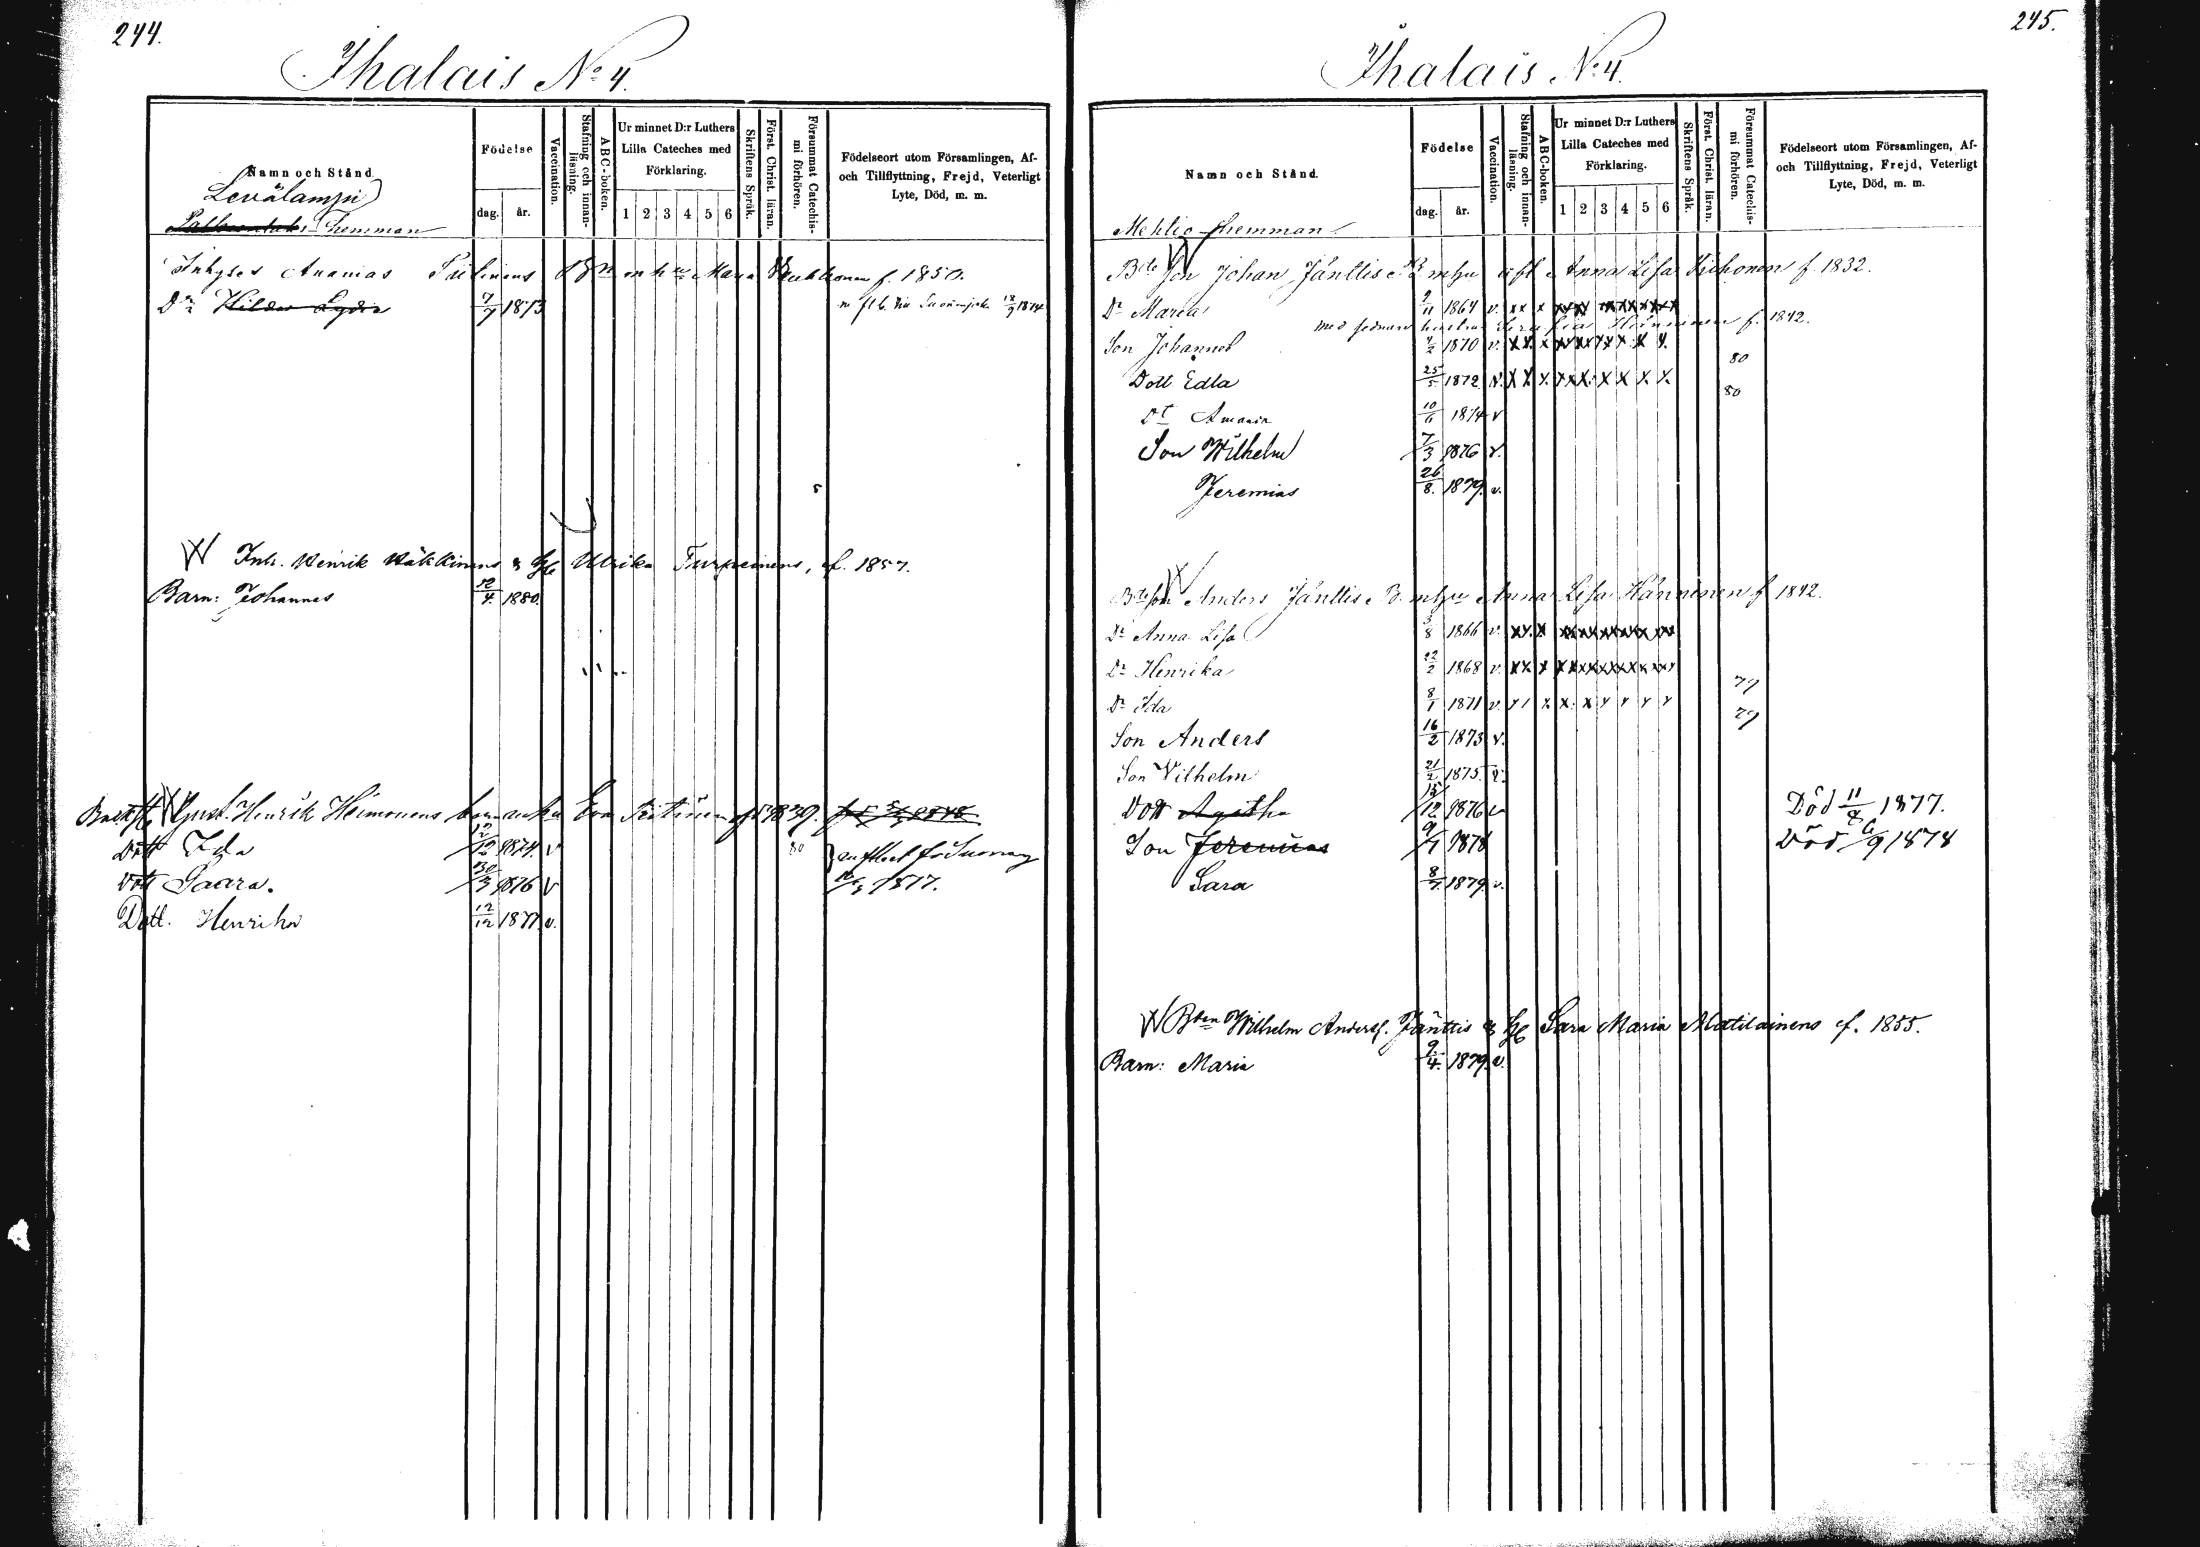 244.
Ihalais No 4.
Namn och Stånd
Födelse
dag.
år.
Vaccination.
Stafning och innanläsning.
ABC-boken.
Ur minnet D:r Luthers Lilla Cateches med Förklaring.
1 2 3 4 5 6
Skriftens Språk.
Först. Christ. läran.
Försummat Catechismi förhören.
Födelseort utom Församlingen, Af- och Tillflyttning, Frejd, Veterligt Lyte, Död, m. m.
Levälampi
hemman
Inhyses Ananias m hu Maria f. 1850.
Dr Hilda Lydia 7/7 1873 1874
Inh. Henrik Häkkinens & Ulrika Turpeinens, f. 1857.
Barn: Johannes 12/4. 1880.
Gust. Henrik Heimonens Eva 1839.
Dott Ida 1874. v 80
Dott Saara. 30/3 1876 v 1877.
Dott. Henrika 12/12 1877. v.
245.
Ihalais No 4.
Namn och Stånd.
Födelse
dag.
år.
Vaccination.
Stafning och innanläsning.
ABC-boken.
Ur minnet D:r Luthers Lilla Cateches med Förklaring.
1 2 3 4 5 6
Skriftens Språk.
Först. Christ. läran.
Försummat Catechismi förhören.
Födelseort utom Församlingen, Af- och Tillflyttning, Frejd, Veterligt Lyte, Död, m. m.
Mehtio hemman
Bde Son Johan Jänttis B mhu Anna Lisa f. 1832.
Dr Maria 1864 v. x x x
med sednare hustru Heinonen f. 1842.
Son Johannes 1870 v. x x x 80
Dott Edla 25/5 1872 v. x x x 80
Dt Amanda 1874 v
Son Wilhelm 7/3 1876 v.
Jeremias 26/8. 1879. v.
Bde son Anders Jänttis B. mhu Anna Lisa Hänninen f 1842.
Dr Anna Lisa 3/8 1866 v. x x x
Dr Henrika 22/2 1868 v. x x x 79
Dr Ida 8/1 1871 v. x x x x x x x x 79
Son Anders 16/2 1873 v.
Son Vilhelm 21/2 1875. v.
Dott Agatha 1876 v Död 11/8 1877.
Son Jeremias 1878 Död 6/9 1878
Sara 8/7. 1879. v.
Bden Wilhelm Anders. Jänttis & Sara Maria Matilainens f. 1855.
Barn: Maria 9/4. 1879. v.